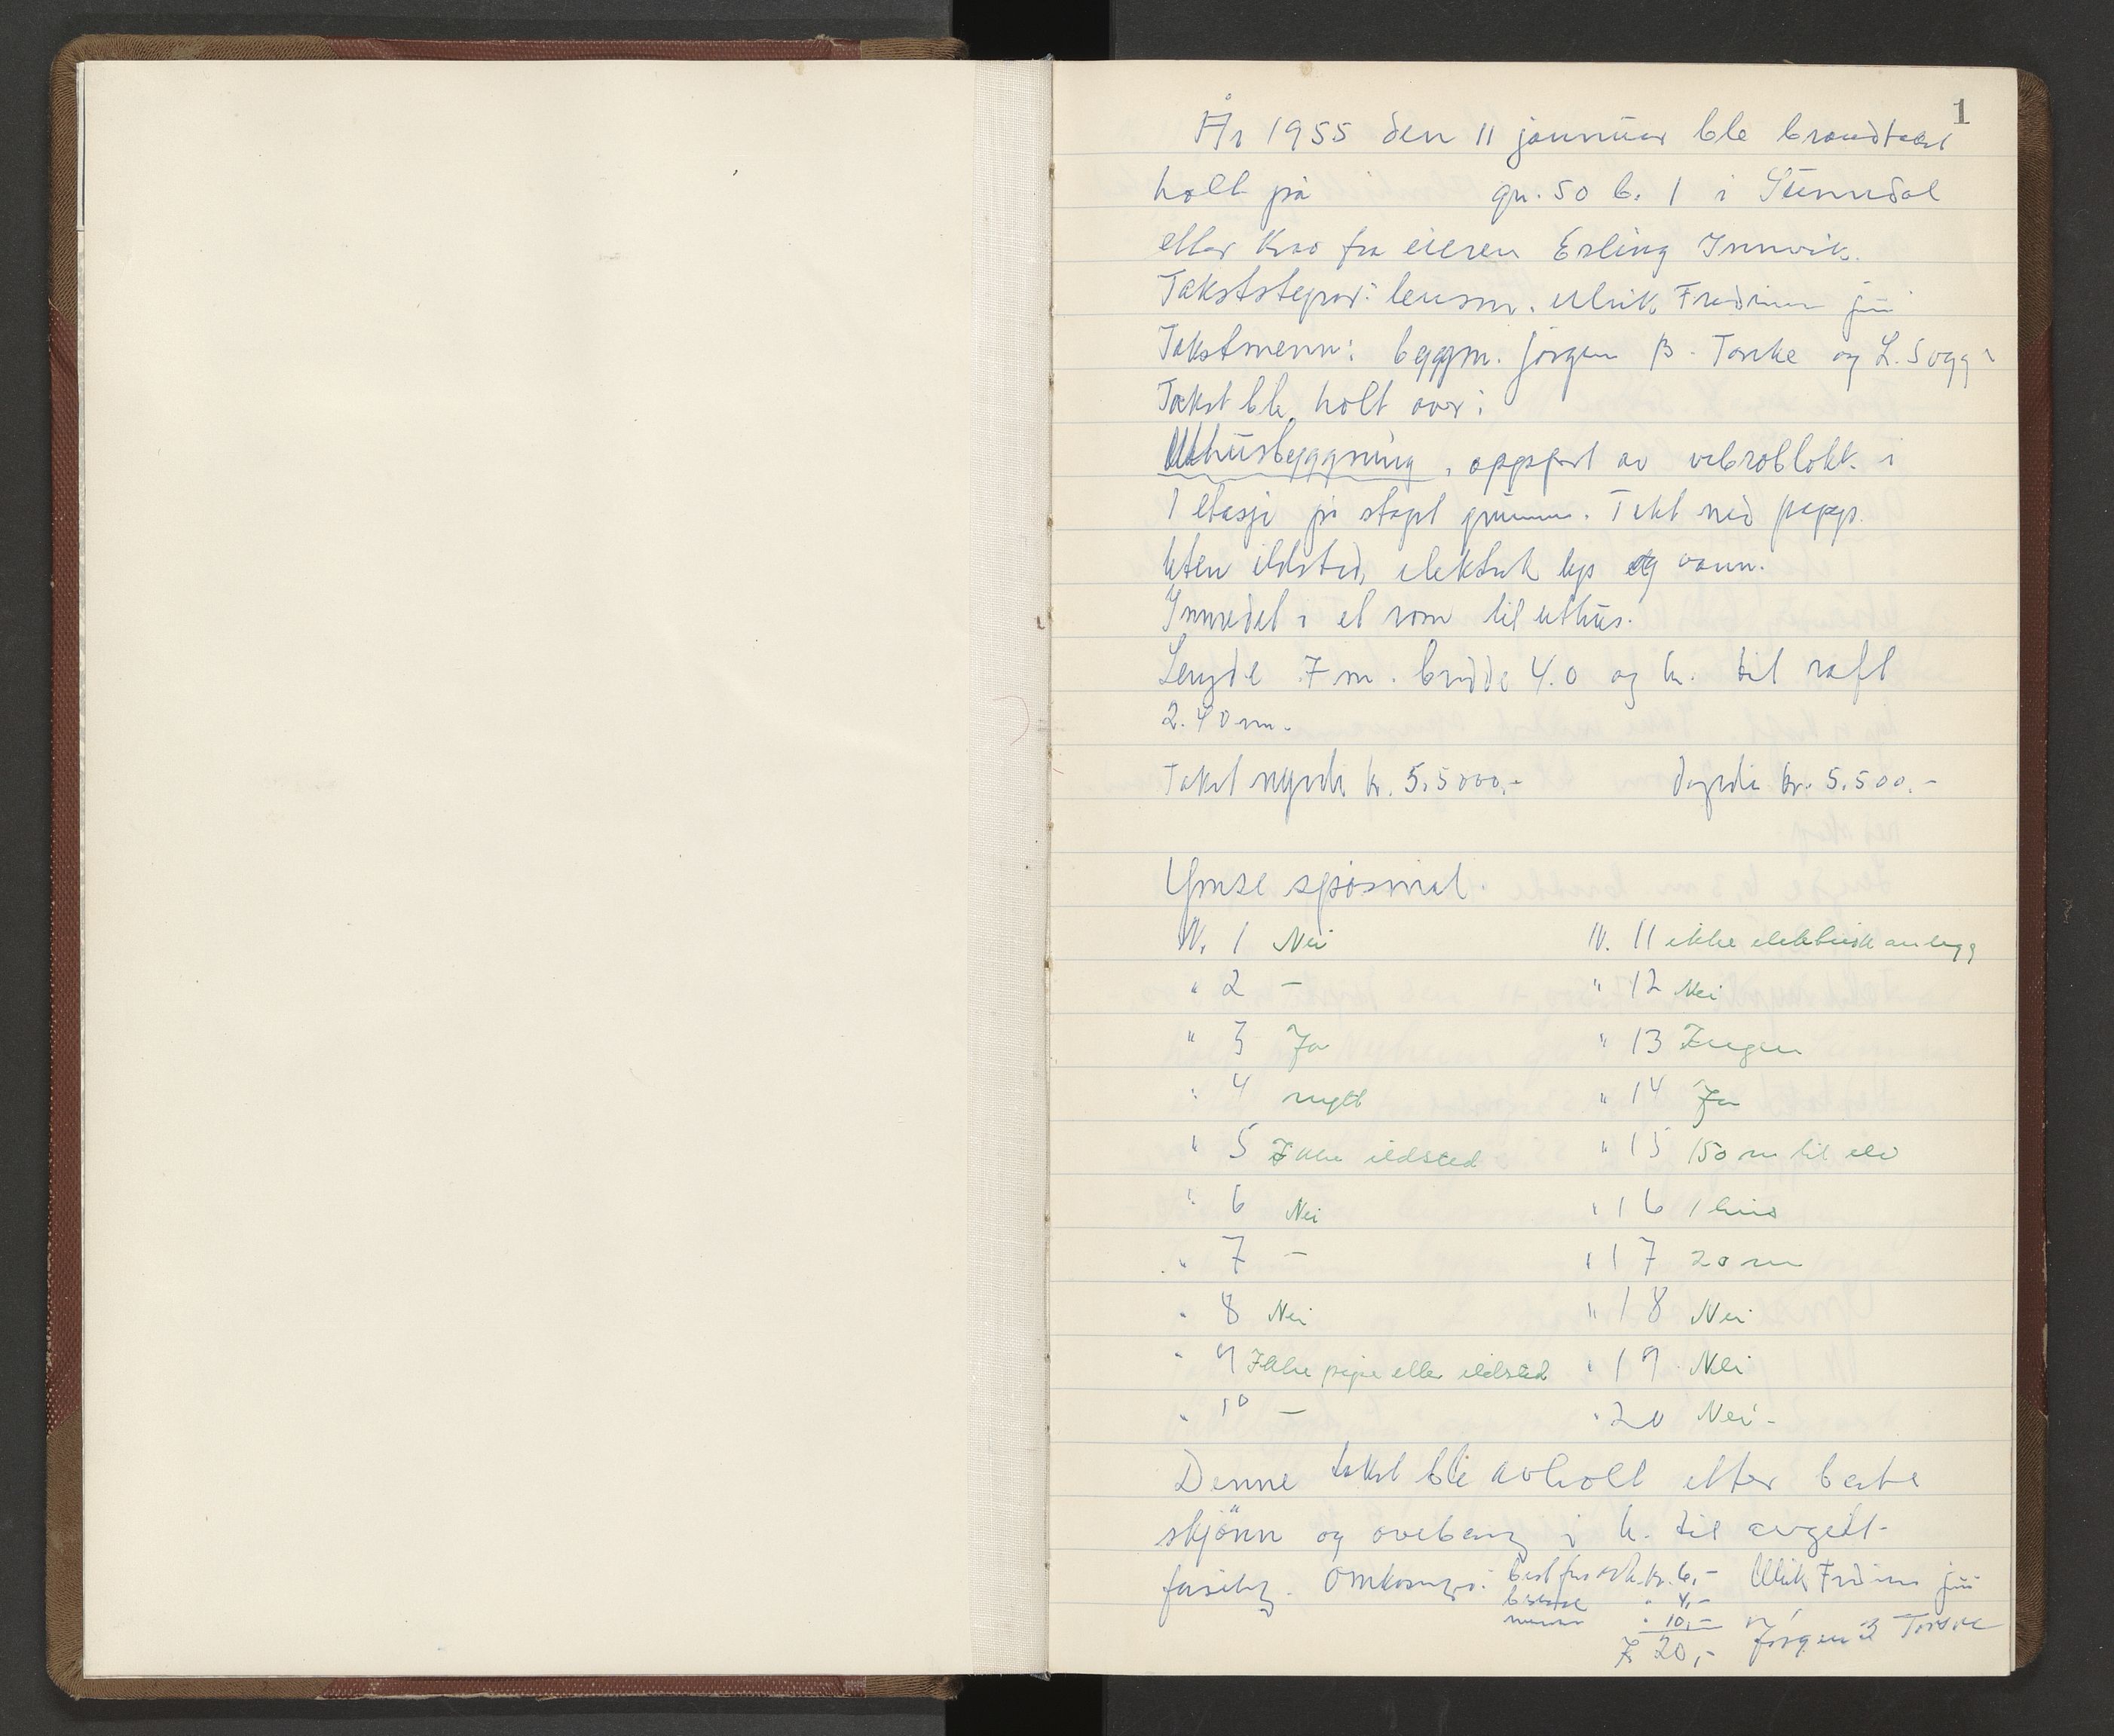 1
År 1955 den 11 januar ble brandtakst
holt på gn. 50 b. 1 i Sunndal
etter krav fra eieren Erling Innvik.
Takststyrar: lensm. Ulrik Fredrim jun
Takstmenn: byggm. Jørgen B. Torske og L. Sogg
Takst ble holt over:
Uthusbyggning, oppført av vibroblokk i
1 etasje på støpt grunnm. Tekt med papp.
Uten ildsted, elektrik lys og vann.
Innredet i et rom til uthus.
Lengde 7 m. bredde 4.0 og h. til raft
2.40 m.
Takst nyverdi kr. 5.5000,- dagverdi kr. 5.500,-
Ymse spøsmal.
N. 1 Nei N. 11 ikke elektrisk anlegg
" 2 — " 12 Nei
" 3 Ja " 13 Ingen
" 4 nytt " 14 Ja
" 5 Ikke ildsted " 15 150 m til elv
" 6 Nei " 16 1 hus
" 7 — " 17 20 m
" 8 Nei " 18 Nei
" 9 Ikke pipe eller ildsted " 19 Nei
" 10 — " 20 Nei-
Denne takst ble avholt etter beste
skjönn og i h. til avgitt
Omkostninger: kr. 6,- Ulrik Fredrim jun
" 4,-
" 10,-
20,- Jørgen B Torske